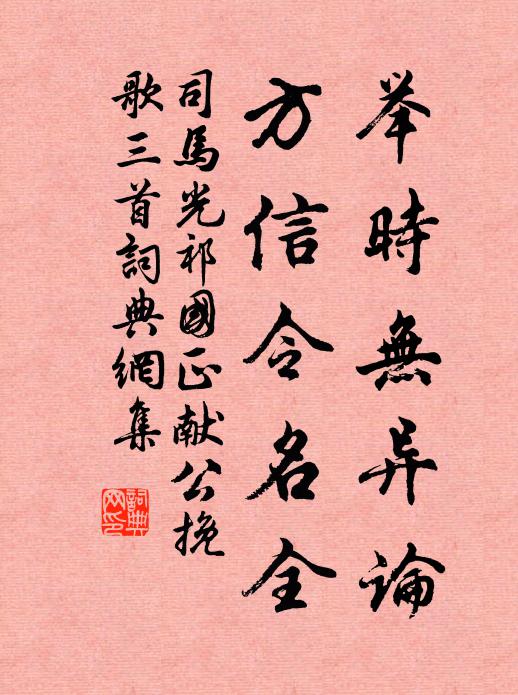 举時無异論
方信令名全
司馬光祁國正献公挽
歌三首詞典網集
詞典
网印